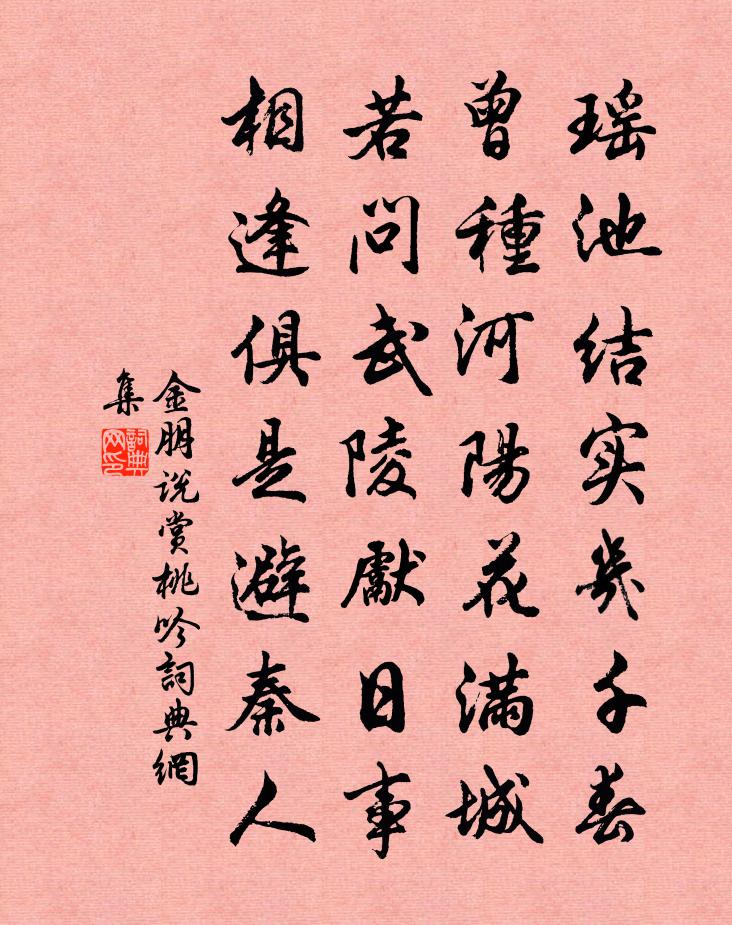 瑶池结实几千春
曾種河陽花滿城
若问武陵獻日事
相逢俱是避秦人
金朋说赏桃吟詞典網
集
詞典
网印